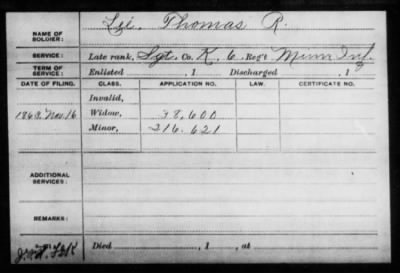 NAME OF SOLDIER: Lie. Thomas R.
SERVICE: Late rank, Sgt. Co. K, 6 Reg't Minn Inf.
TERM OF SERVICE: Enlisted , 1 Discharged , 1
DATE OF FILING. CLASS. APPLICATION NO. LAW. CERTIFICATE NO.
Invalid,
1863. Nov. 16 Widow, 38,600
Minor, 216.621
ADDITIONAL SERVICES:
REMARKS:
Died , 1 , at